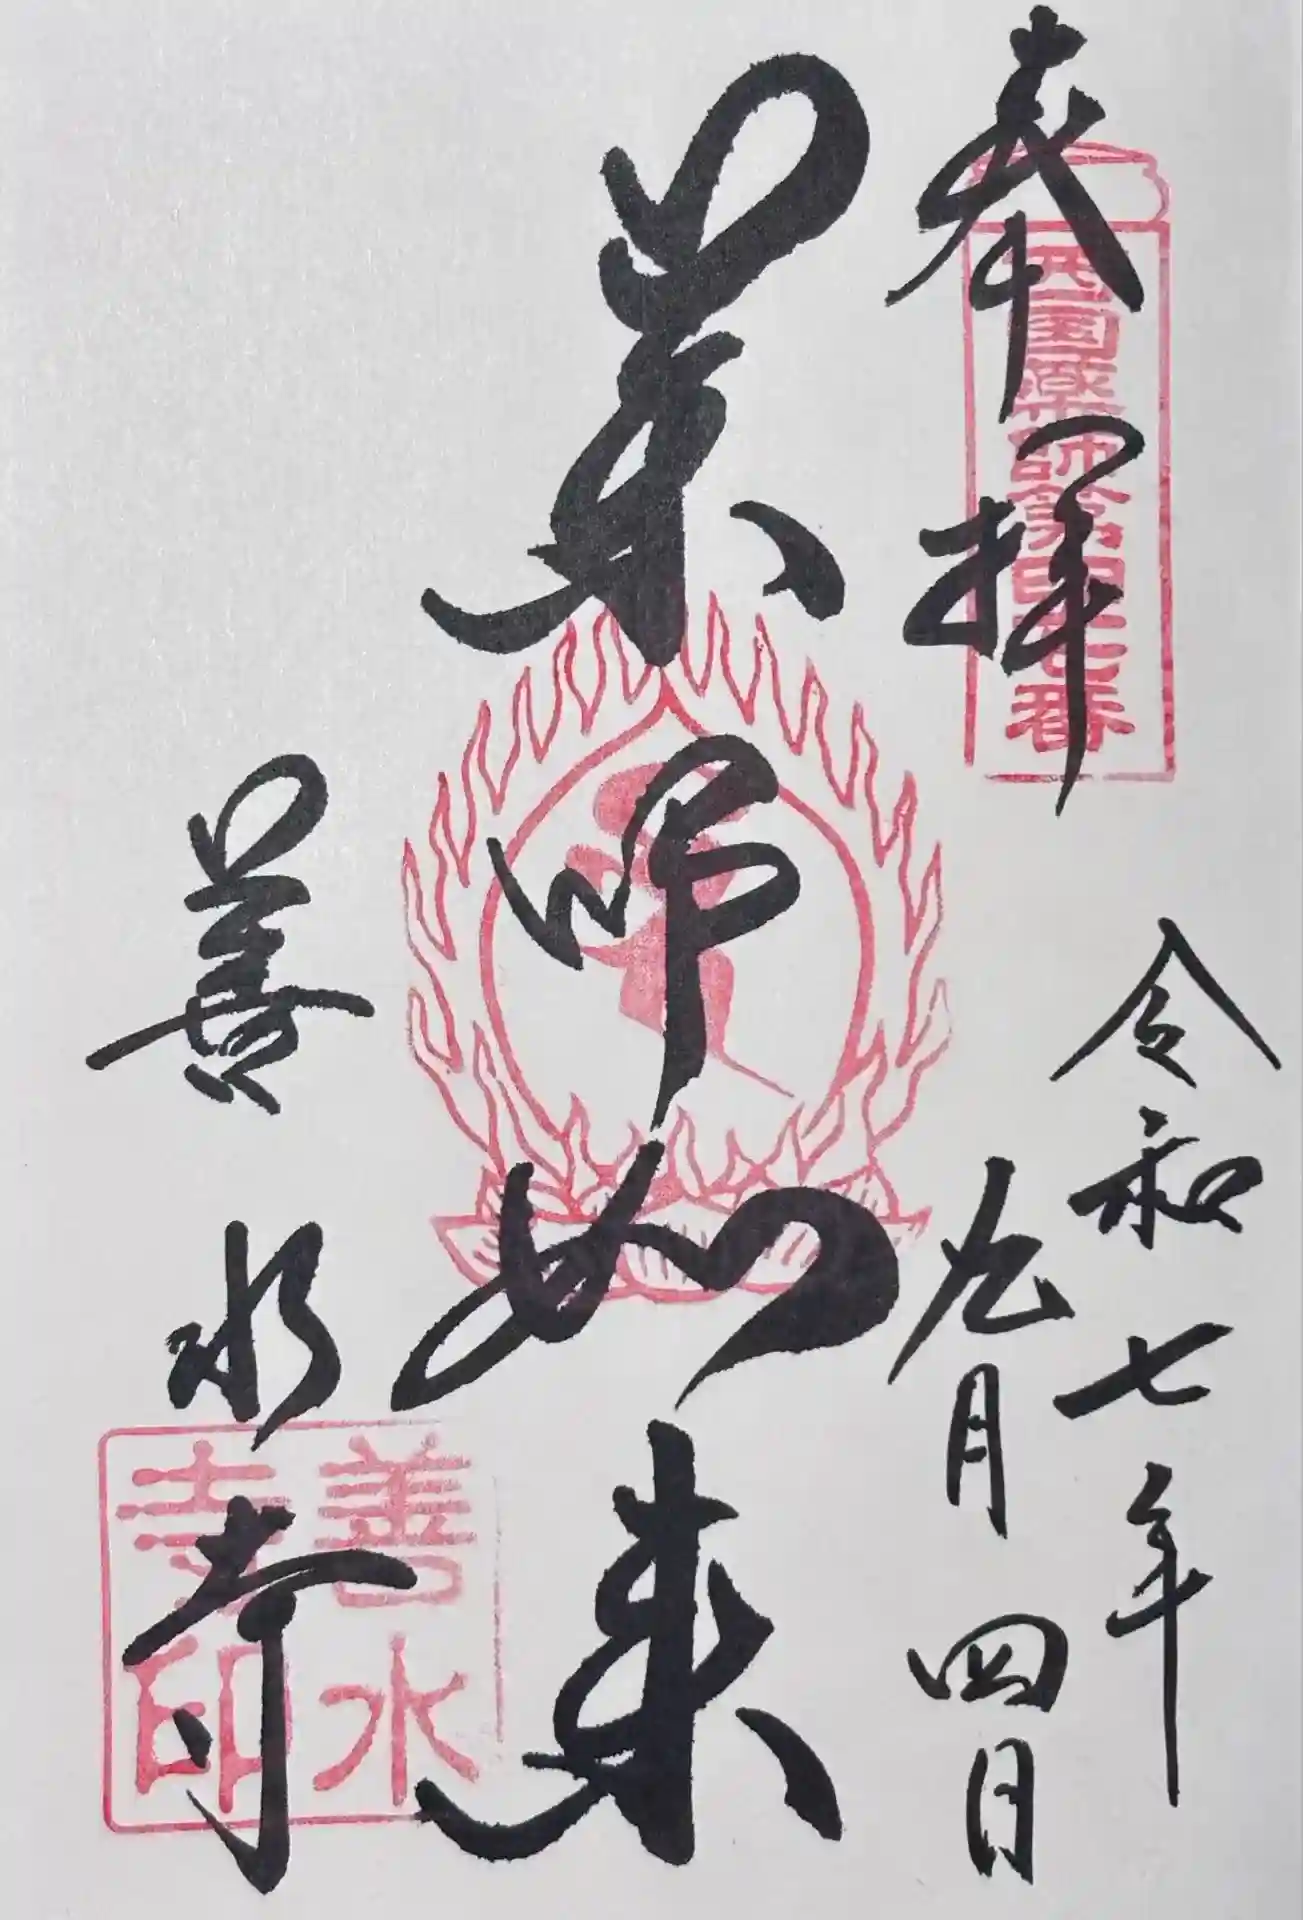 奉拝
西国薬師第四七番
令和七年
九月四日
薬師如来
善水寺
善水寺印